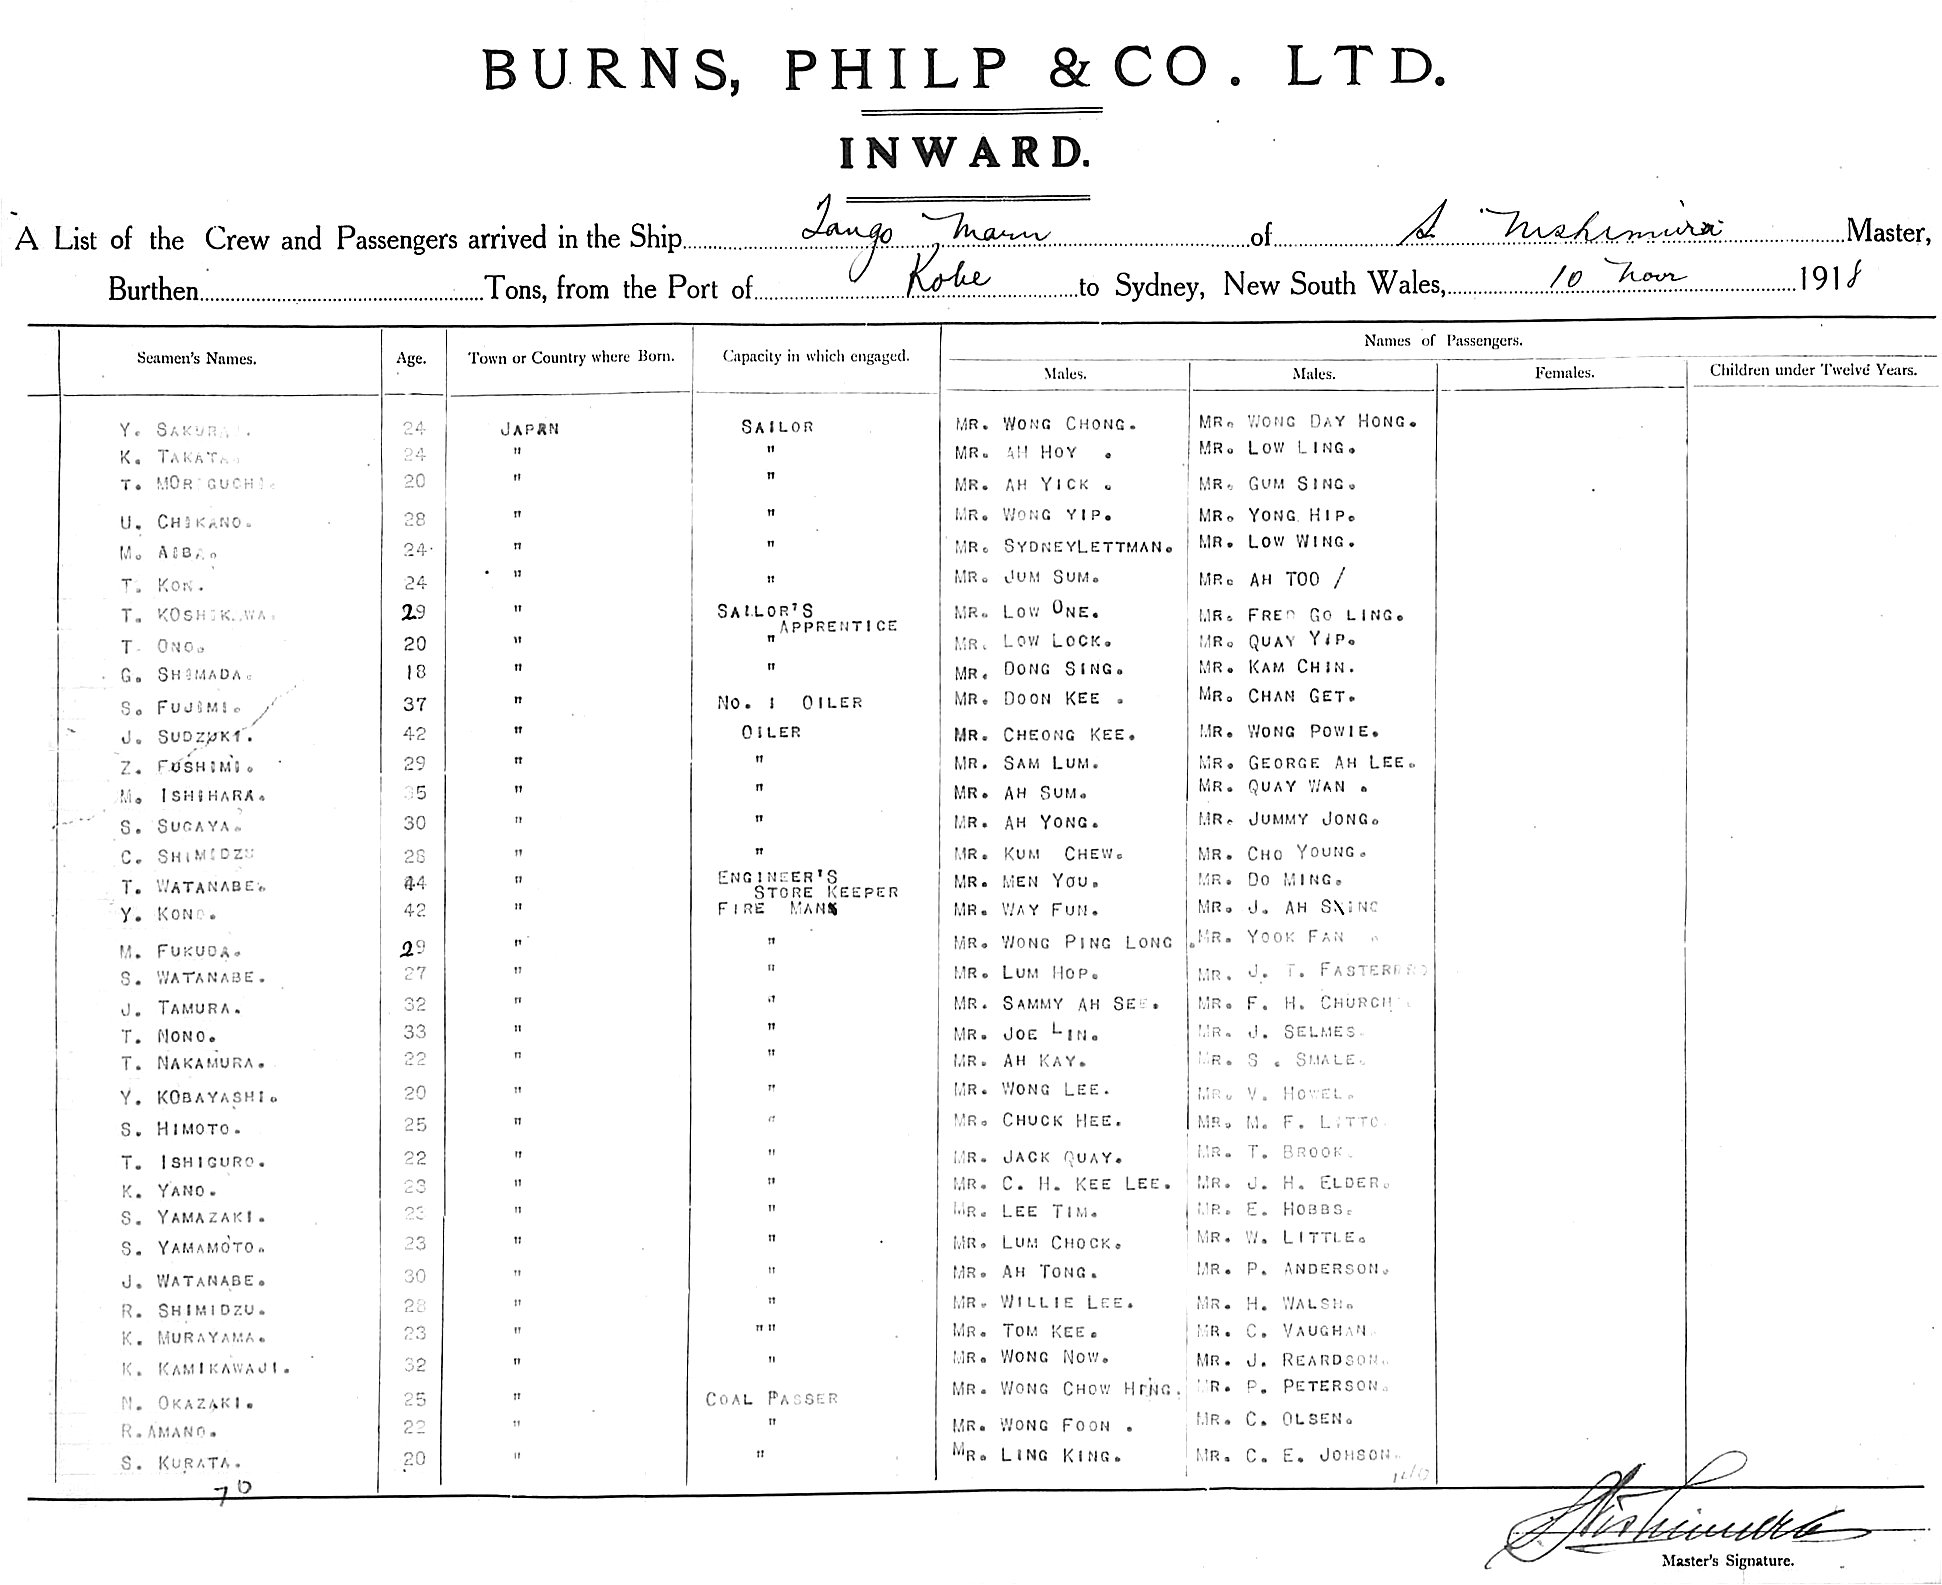 BURNS, PHILP & CO. LTD.
INWARD.
A List of the Crew and Passengers arrived in the Ship Tango Maru of S. Nishimura Master,
Burthen Tons, from the Port of Kobe to Sydney, New South Wales, 10 Novr 1918
Seamen's Names. Age. Town or Country where Born. Capacity in which engaged. Names of Passengers.
Males. Males. Females. Children under Twelve Years.
Y. SAKURAI. 24 JAPAN SAILOR MR. WONG CHONG. MR. WONG DAY HONG.
K. TAKATA. 24 " " MR. AH HOY . MR. LOW LING.
T. MORIGUCHI. 20 " " MR. AH YICK . MR. GUM SING.
U. CHIKANO. 28 " " MR. WONG YIP. MR. YONG HIP.
M. AIBA. 24 " " MR. SYDNEYLETTMAN. MR. LOW WING.
T. KON. 24 " " MR. JUM SUM. MR. AH TOO /
T. KOSHIKAWA. 29 " SAILOR'S APPRENTICE MR. LOW ONE. MR. FRED GO LING.
T. ONO. 20 " " MR. LOW LOCK. MR. QUAY YIP.
G. SHIMADA. 18 " " MR. DONG SING. MR. KAM CHIN.
S. FUJIMI. 37 " NO. 1 OILER MR. DOON KEE . MR. CHAN GET.
J. SUDZUKI. 42 " OILER MR. CHEONG KEE. MR. WONG POWIE.
Z. FUSHIMI. 29 " " MR. SAM LUM. MR. GEORGE AH LEE.
M. ISHIHARA. 35 " " MR. AH SUM. MR. QUAY WAN .
S. SUGAYA. 30 " " MR. AH YONG. MR. JUMMY JONG.
C. SHIMIDZU 28 " " MR. KUM CHEW. MR. CHO YOUNG.
T. WATANABE. 44 " ENGINEER'S STORE KEEPER MR. MEN YOU. MR. DO MING.
Y. KONO. 42 " FIRE MAN MR. WAY FUN. MR. J. AH SING
M. FUKUDA. 29 " " MR. WONG PING LONG . MR. YOOK FAN .
S. WATANABE. 27 " " MR. LUM HOP. MR. J. T.
J. TAMURA. 32 " " MR. SAMMY AH SEE. MR. F. H. CHURCH.
T. NONO. 33 " " MR. JOE LIN. MR. J. SELMES.
T. NAKAMURA. 22 " " MR. AH KAY. MR. S . SMALE.
Y. KOBAYASHI. 20 " " MR. WONG LEE. MR. V. HOWEL.
S. HIMOTO. 25 " " MR. CHUCK HEE. MR. M. F. LITTO.
T. ISHIGURO. 22 " " MR. JACK QUAY. MR. T. BROOK.
K. YANO. 23 " " MR. C. H. KEE LEE. MR. J. H. ELDER.
S. YAMAZAKI. 23 " " MR. LEE TIM. MR. E. HOBBS.
S. YAMAMOTO. 23 " " MR. LUM CHOCK. MR. W. LITTLE.
J. WATANABE. 30 " " MR. AH TONG. MR. P. ANDERSON.
R. SHIMIDZU. 28 " " MR. WILLIE LEE. MR. H. WALSH.
K. MURAYAMA. 23 " "" MR. TOM KEE. MR. C. VAUGHAN.
K. KAMIKAWAJI. 32 " " MR. WONG NOW. MR. J. REARDSON.
N. OKAZAKI. 25 " COAL PASSER MR. WONG CHOW HENG. MR. P. PETERSON.
R.AMANO. 22 " " MR. WONG FOON . MR. C. OLSEN.
S. KURATA. 20 " " MR. LING KING. MR. C. E. JOHSON.
70 140
S. Nishimura
Master's Signature.